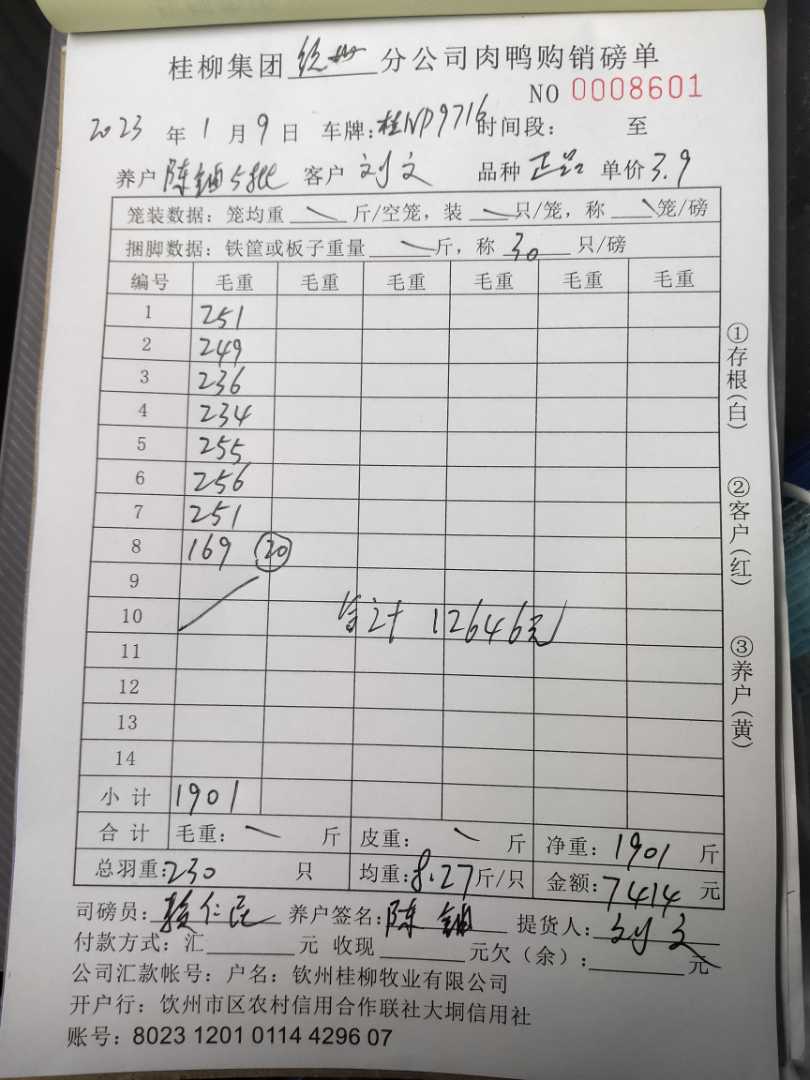 桂柳集团 钦州 分公司肉鸭购销磅单
NO 0008601
2023 年 1 月 9 日 车牌:桂ND9716 时间段: 至
养户 陈 5批 客户 刘文 品种 正品 单价 3.9
笼装数据: 笼均重 \ 斤/空笼, 装 \ 只/笼, 称 \ 笼/磅
捆脚数据: 铁筐或板子重量 \ 斤, 称 30 只/磅
编号 毛重 毛重 毛重 毛重 毛重 毛重
1 251
2 249
3 236
4 234
5 255
6 256
7 251
8 169 20
9
10 合计 12646元
11
12
13
14
小计 1901
合计 毛重: \ 斤 皮重: \ 斤 净重: 1901 斤
总羽重:230 只 均重:8.27斤/只 金额:7414 元
司磅员: 仁 养户签名: 陈 提货人: 刘文
付款方式: 汇 元 收现 元欠 (余): 元
公司汇款帐号: 户名: 钦州桂柳牧业有限公司
开户行: 饮州市区农村信用合作联社大垌信用社
账号: 8023 1201 0114 4296 07
①存根(白)
②客户(红)
③养户(黄)